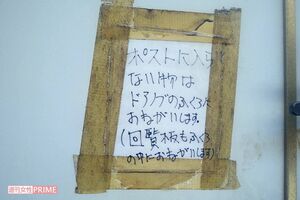 ポストに入ら
ない物は
ドアノブのふくろに
おねがいします
(回覧板もふくろ
の中におねがいします)
週刊女性PRIME